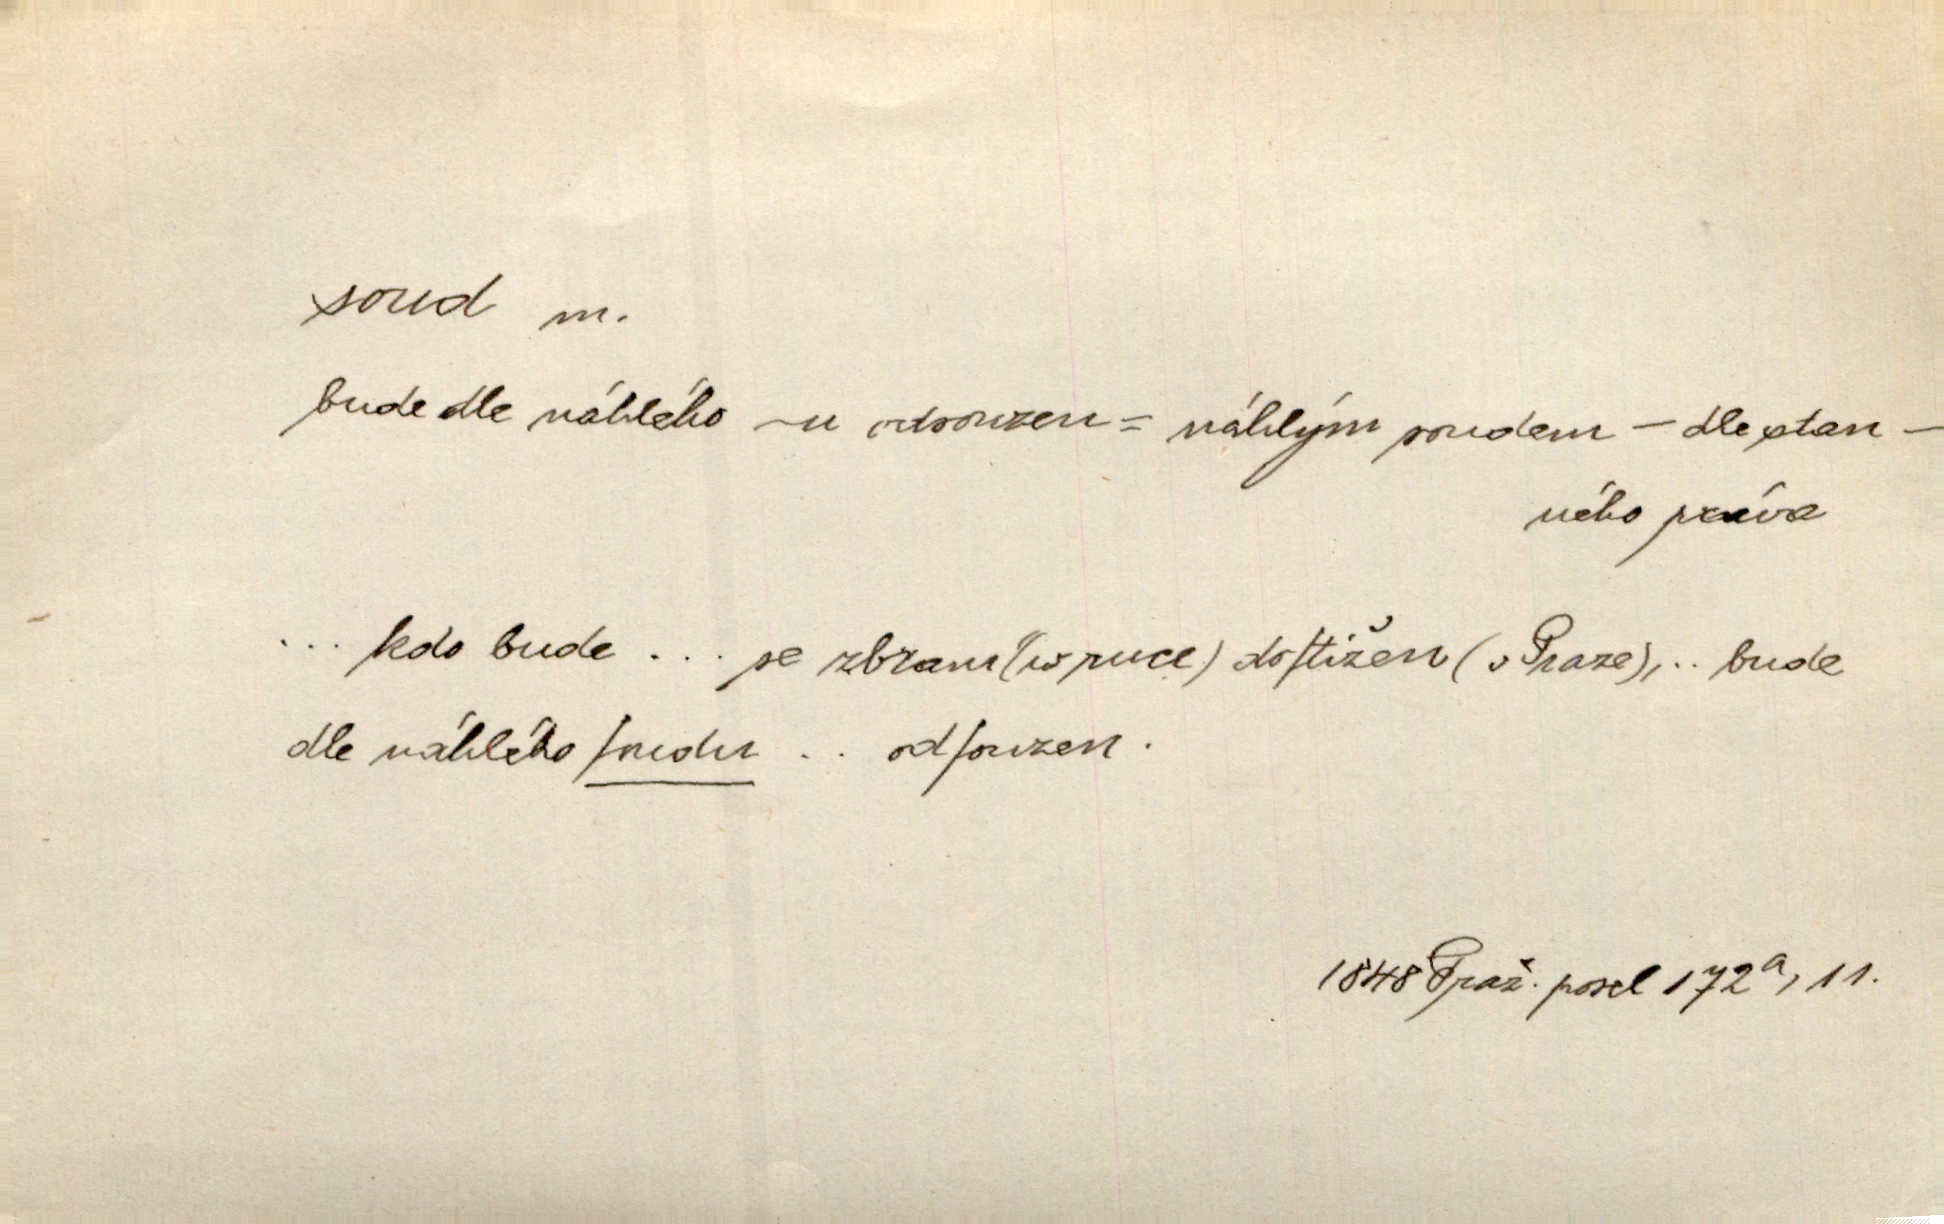 soud m.
bude dle náhlého ~u odsouzen = náhlým soudem – dle stan-
ného práva
... kdo bude ... se zbraní (w ruce) doſtižen (v Praze), .. bude
dle náhlého ſoudu .. odſouzen.
1848 Praž. posel 172ª, 11.